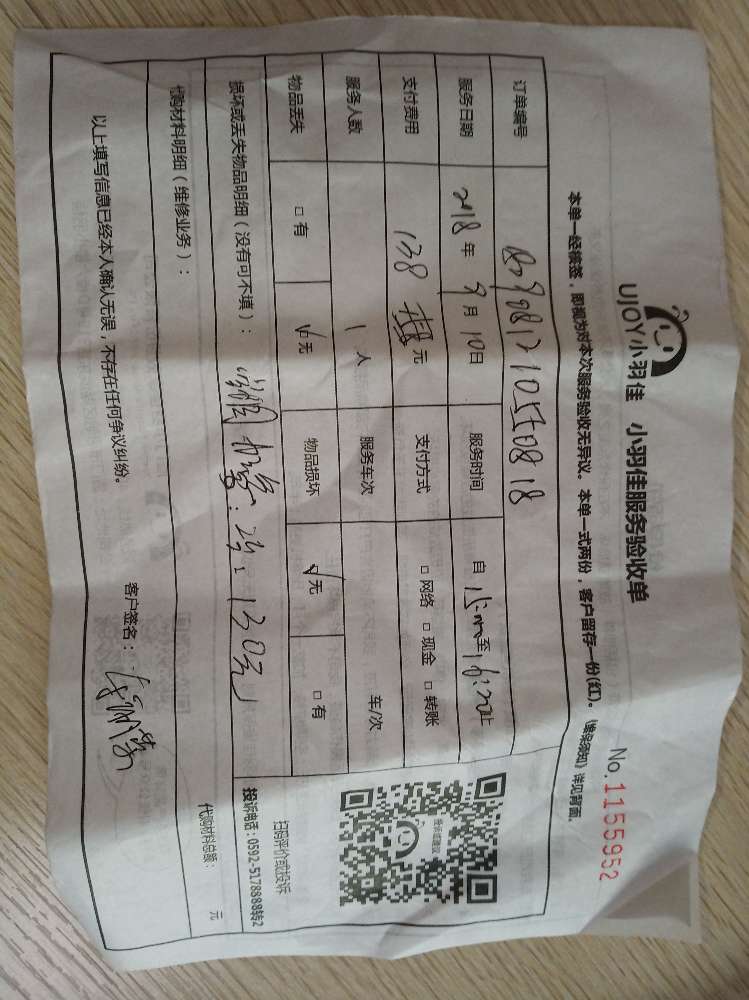 UJOY小羽佳 小羽佳服务验收单
No.1155952
本单一经核签，即视为对本次服务验收无异议。本单一式两份，客户留存一份(红)。《维保须知》详见背面。
订单编号
服务日期 2018年 9月 10日 服务时间 自 15:00 至 16:20止
支付费用 138 元 支付方式 □网络 □现金 □转账
服务人数 1人 服务车次 车/次
物品丢失 □有 √无 物品损坏 √无 □有
损坏或丢失物品明细（没有可不填）：
130元
代购材料明细（维修业务）：
代购材料总额： 元
以上填写信息已经本人确认无误，不存在任何争议纠纷。
客户签名：
扫码评价或投诉
投诉电话：0592-5178888转2